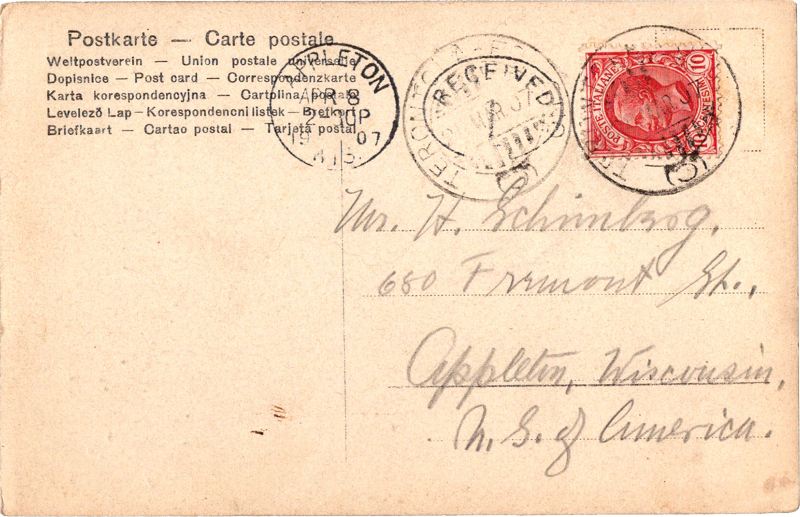 Postkarte — Carte postale
Weltpostverein — Union postale universelle
Dopisnice — Post card — Correspondenzkarte
Karta korespondencyjna — Cartolina postale
Levelező Lap – Korespondencni listek – Brefkort
Briefkaart — Cartao postal — Tarjeta postal
APPLETON
APR 8
19 07
WIS.
RECEIVED
POSTE ITALIANE
10
Mr. H. Schimberg,
680 Fremont St.,
Appleton, Wisconsin,
U. S. of America.